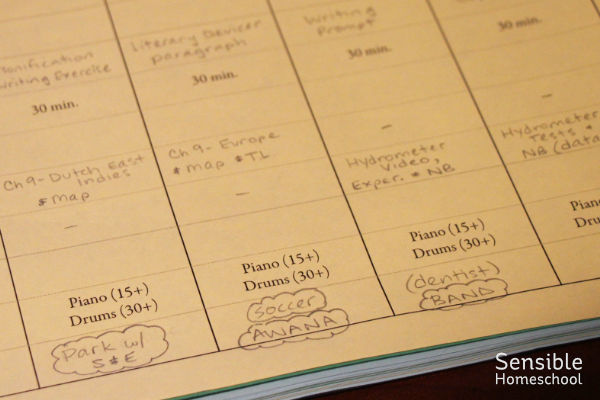 onification
writing Exercise
30 min.
Ch 9- Dutch East
Indies
& map
–
Piano (15+)
Drums (30+)
Park w/
S & E
Literary Devices
paragraph
30 min.
Ch 9- Europe
& map & TL
–
Piano (15+)
Drums (30+)
soccer
AWANA
Writing
Prompt
30 min.
–
Hydrometer
Video,
Exper. & NB
Piano (15+)
Drums (30+)
(dentist)
BAND
30 min.
–
Hydrometer
Tests &
NB (data
Piano
Dru
Sensible
Homeschool